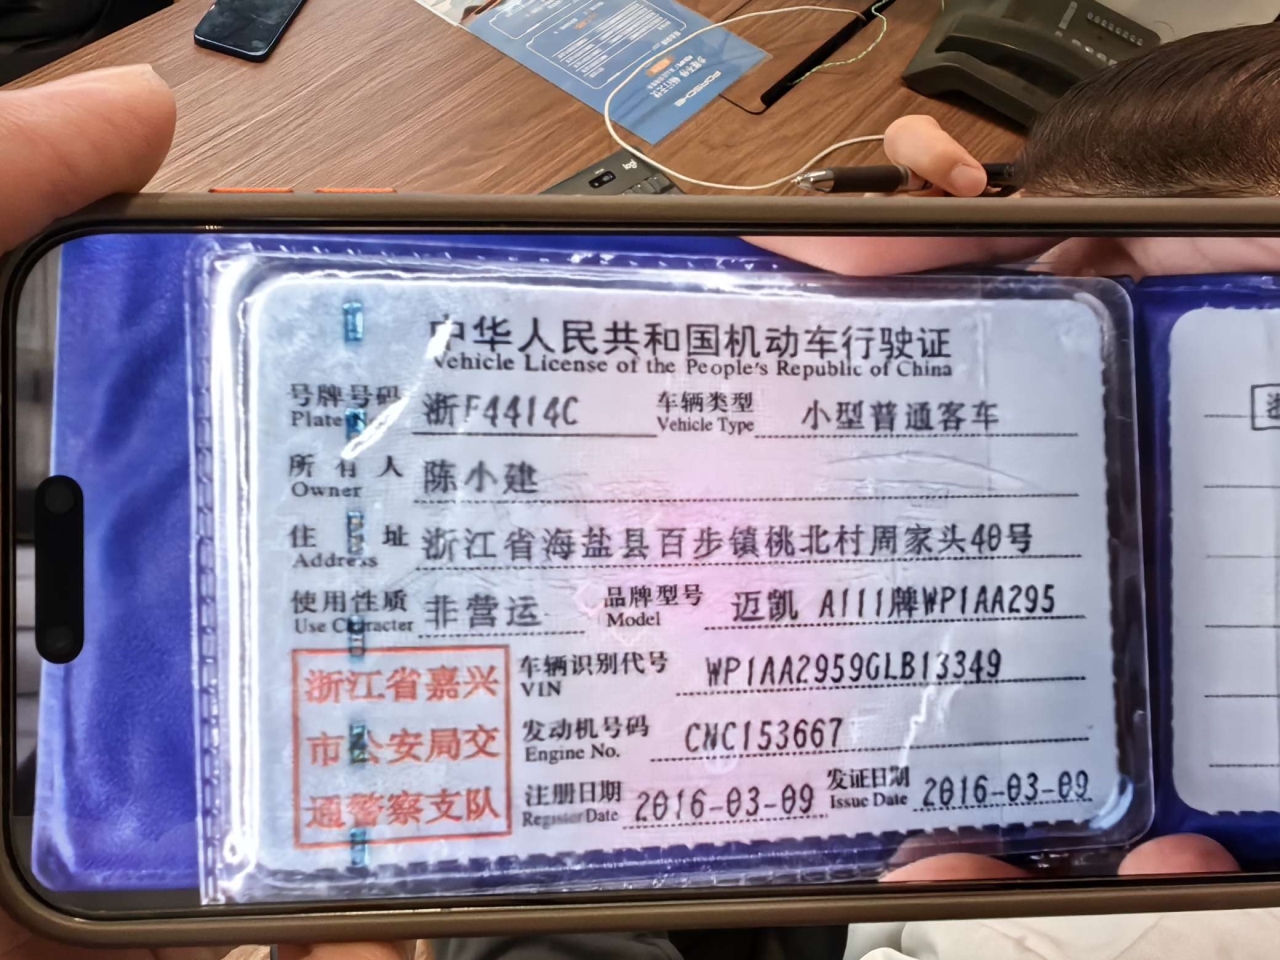 PORSCHE
中华人民共和国机动车行驶证
Vehicle License of the People's Republic of China
号牌号码 浙F4414C 车辆类型 小型普通客车
Plate No. Vehicle Type
所有人 陈小建
Owner
住址 浙江省海盐县百步镇桃北村周家头40号
Address
使用性质 非营运 品牌型号 迈凯 A111牌WP1AA295
Use Character Model
浙江省嘉兴
市公安局交
通警察支队
车辆识别代号 WP1AA2959GLB13349
VIN
发动机号码 CNC153667
Engine No.
注册日期 2016-03-09 发证日期 2016-03-09
Register Date Issue Date